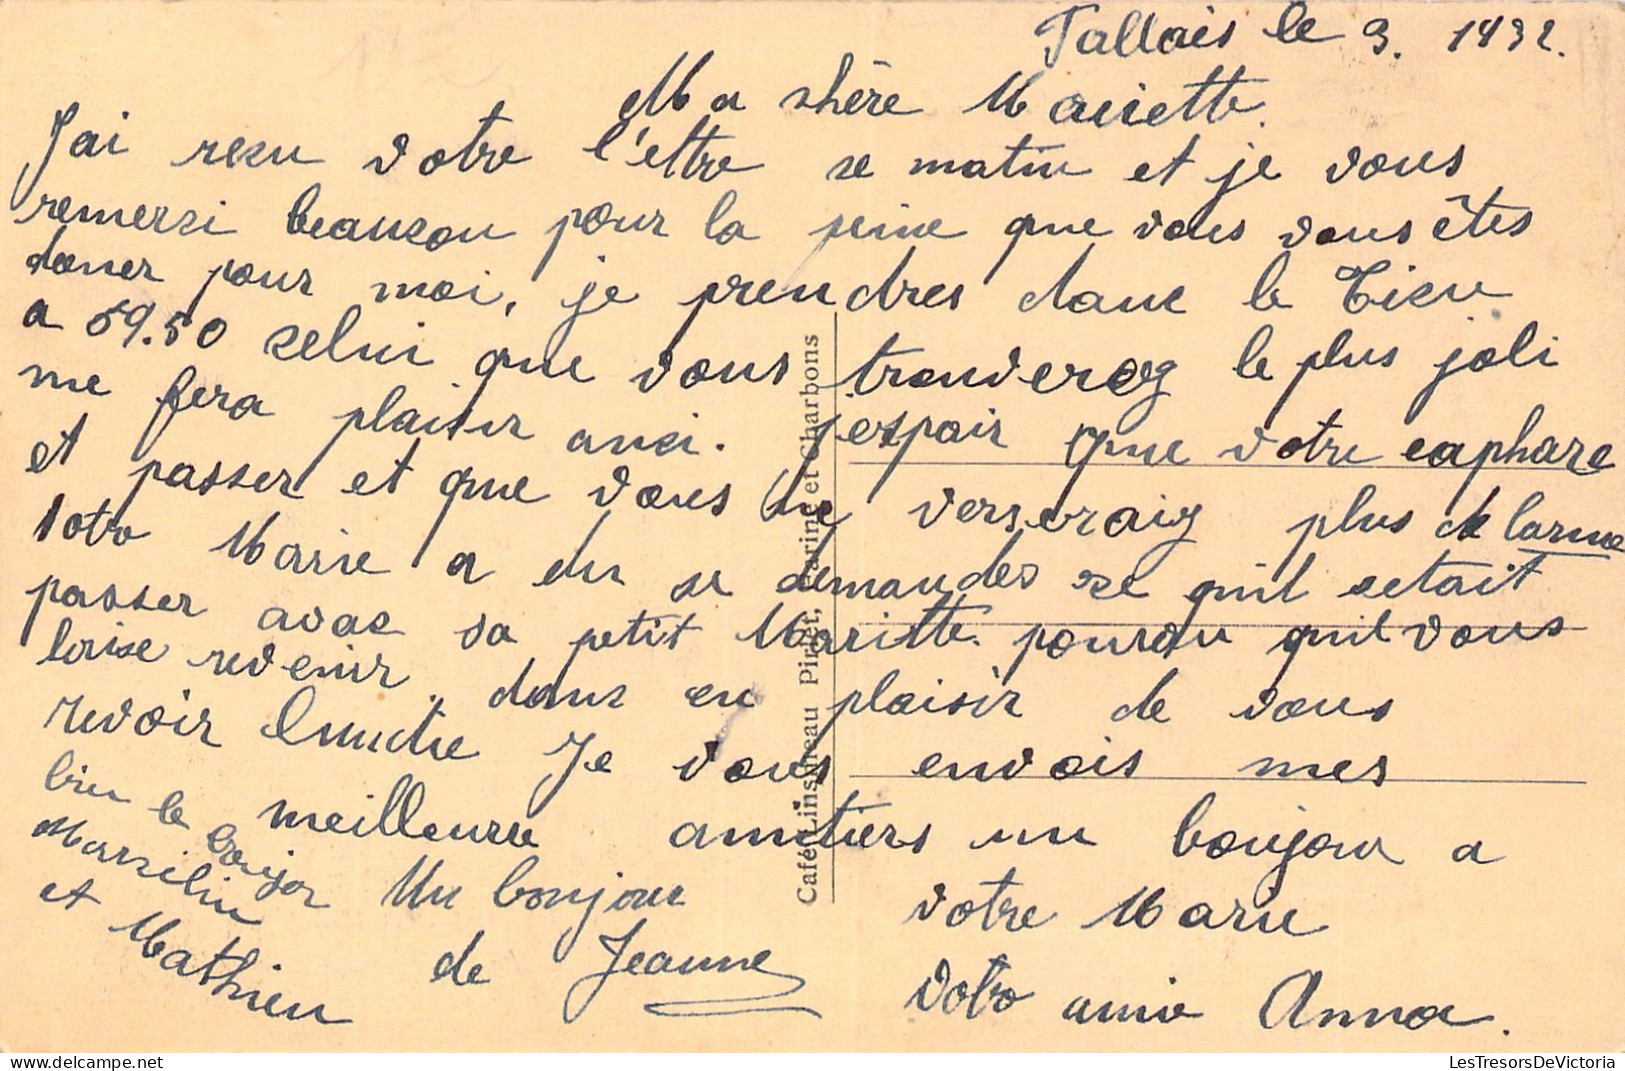 Tallais le 9. 1932.
Ma shère Mariette.
J'ai resu votre l'ettre se matin et je vous
remersi beaucou pour la peine que vous vous êtes
doner pour moi, je prendres danc le Tisu
a 59.50 selui que vous trouveroz le plus joli
me fera plaisir ausi. J'espair que votre caphare
et passer et que vous ne verseraiz plus de larme
votre Marie a du se demandes se quil setait
passer avac sa petit Maritte pourvu quil vous
laise revenir dans en plaisir de vous
revoir Je vous envois mes
meilleurre amitiers un boujour a
votre Marie
Votre amie Anna.
Un bonjour
de Jeanne
bien le bonjor
Marzelin
et Mathieu
Café, Linsmeau Piret, Farine et Charbons
LesTresorsDeVictoria